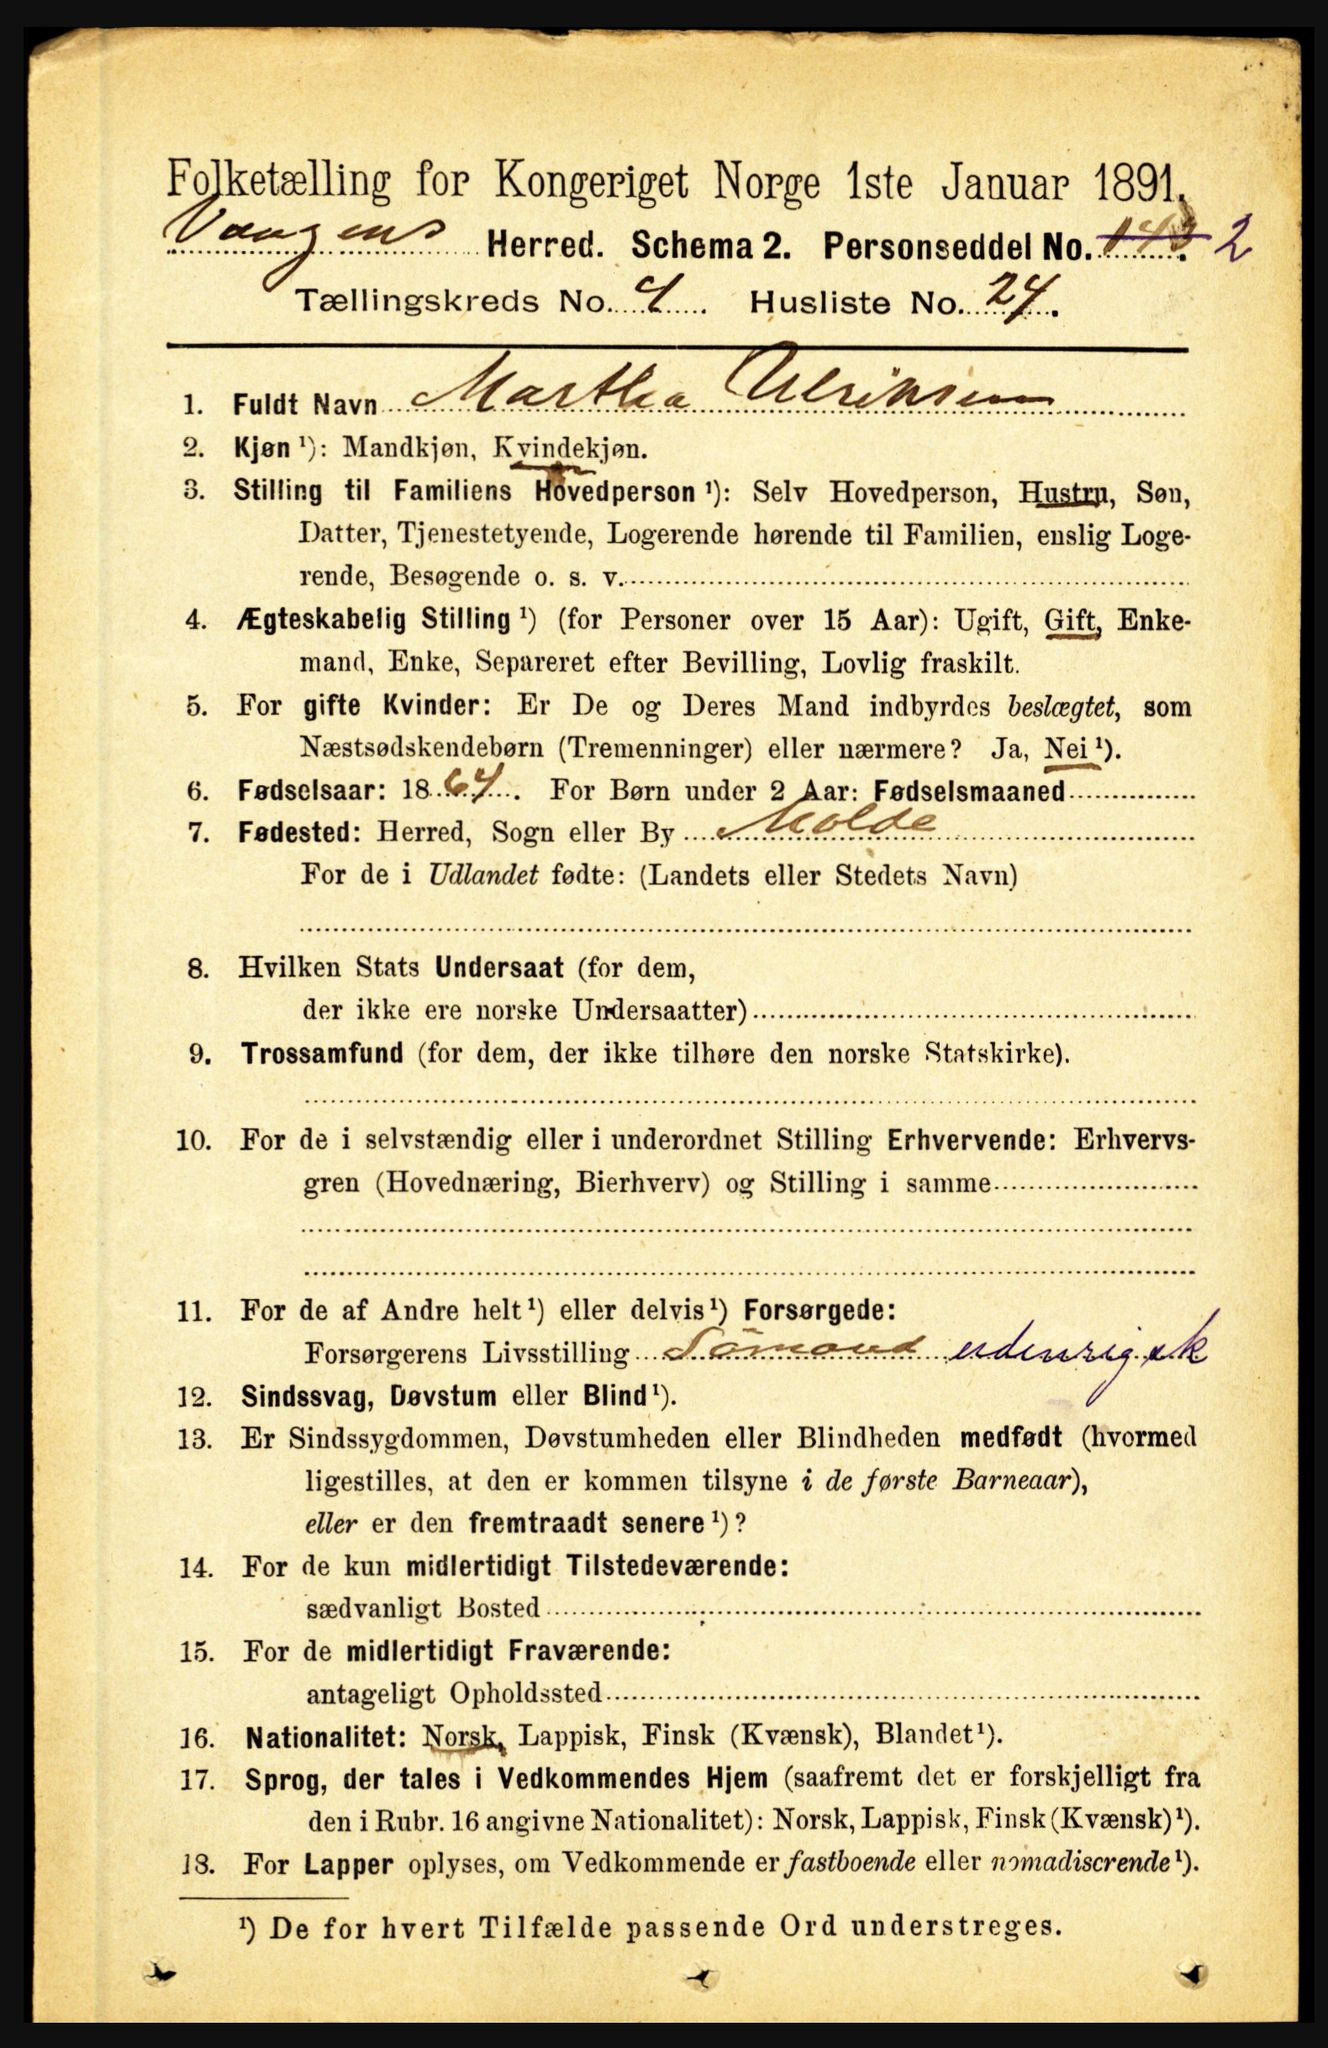 Folketælling for Kongeriget Norge 1ste Januar 1891.
Vaagens Herred. Schema 2. Personseddel No. 143. 2
Tællingskreds No. 4. Husliste No. 24.
1. Fuldt Navn Martha Ulriksen
2. Kjøn ¹): Mandkjøn, Kvindekjøn.
3. Stilling til Familiens Hovedperson ¹): Selv Hovedperson, Hustru, Søn,
Datter, Tjenestetyende, Logerende hørende til Familien, enslig Loge-
rende, Besøgende o. s. v.
4. Ægteskabelig Stilling ¹) (for Personer over 15 Aar): Ugift, Gift, Enke-
mand, Enke, Separeret efter Bevilling, Lovlig fraskilt.
5. For gifte Kvinder: Er De og Deres Mand indbyrdes beslægtet, som
Næstsødskendebørn (Tremenninger) eller nærmere? Ja, Nei ¹).
6. Fødselsaar: 1864. For Børn under 2 Aar: Fødselsmaaned
7. Fødested: Herred, Sogn eller By Molde
For de i Udlandet fødte: (Landets eller Stedets Navn)
8. Hvilken Stats Undersaat (for dem,
der ikke ere norske Undersaatter)
9. Trossamfund (for dem, der ikke tilhøre den norske Statskirke).
10. For de i selvstændig eller i underordnet Stilling Erhvervende: Erhvervs-
gren (Hovednæring, Bierhverv) og Stilling i samme
11. For de af Andre helt ¹) eller delvis ¹) Forsørgede:
Forsørgerens Livsstilling Sömand udenrigsk
12. Sindssvag, Døvstum eller Blind ¹).
13. Er Sindssygdommen, Døvstumheden eller Blindheden medfødt (hvormed
ligestilles, at den er kommen tilsyne i de første Barneaar),
eller er den fremtraadt senere ¹)?
14. For de kun midlertidigt Tilstedeværende:
sædvanligt Bosted
15. For de midlertidigt Fraværende:
antageligt Opholdssted
16. Nationalitet: Norsk, Lappisk, Finsk (Kvænsk), Blandet ¹).
17. Sprog, der tales i Vedkommendes Hjem (saafremt det er forskjelligt fra
den i Rubr. 16 angivne Nationalitet): Norsk, Lappisk, Finsk (Kvænsk) ¹).
18. For Lapper oplyses, om Vedkommende er fastboende eller nomadiserende ¹).
¹) De for hvert Tilfælde passende Ord understreges.